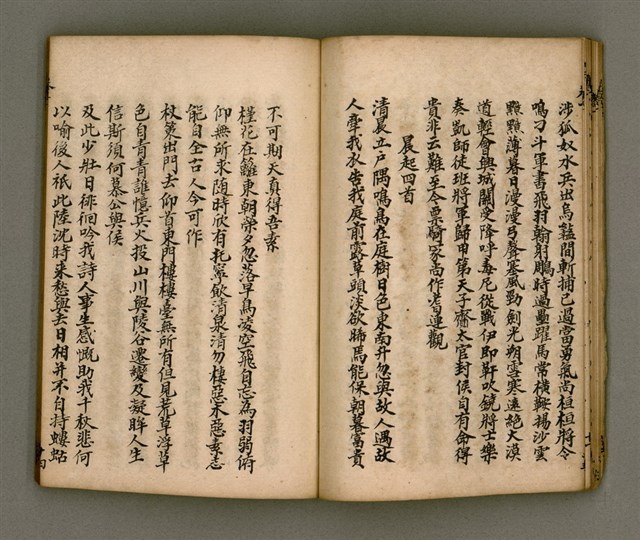 涉狐奴水兵出烏盭間斬捕已過當勇氣尚桓桓將令
鳴刁斗軍書飛羽翰射鵰時過壘躍馬常橫鞭揚沙雲
黯黯薄暮日漫漫弓聲塞風勁劍光朔雪寒遠絕大漠
道輕會輿城闕受降呼毒尼從戰伊即靬吹鐃將士樂
奏凱師徒班將軍歸甲第天子齋太官封侯自有命得
貴非云難至今票騎冢尚作耆連觀
晨起四首
清晨立戶隅鳴鳥在庭樹日色東南升忽與故人遇故
人牽我衣告我庭前露草頭淡欲晞焉能保朝暮富貴
不可期天真得吾素
槿花在籬東朝榮夕忽落早鳥凌空飛自忘為羽弱俯
仰無所求随時欣有托寧飲清泉清勿棲惡木惡素志
能自全古人今可作
杖策出門去仰首東門樓樓臺無所有但見荒草浮草
色自青青誰憶兵火投山川與陵谷遷變及凝眸人生
信斯須何慕公與侯
及此少壯日徘徊吟我詩人事生感慨助我千秋悲何
以喻後人祇此陸沈時來愁與去日相并不自持蟪蛄